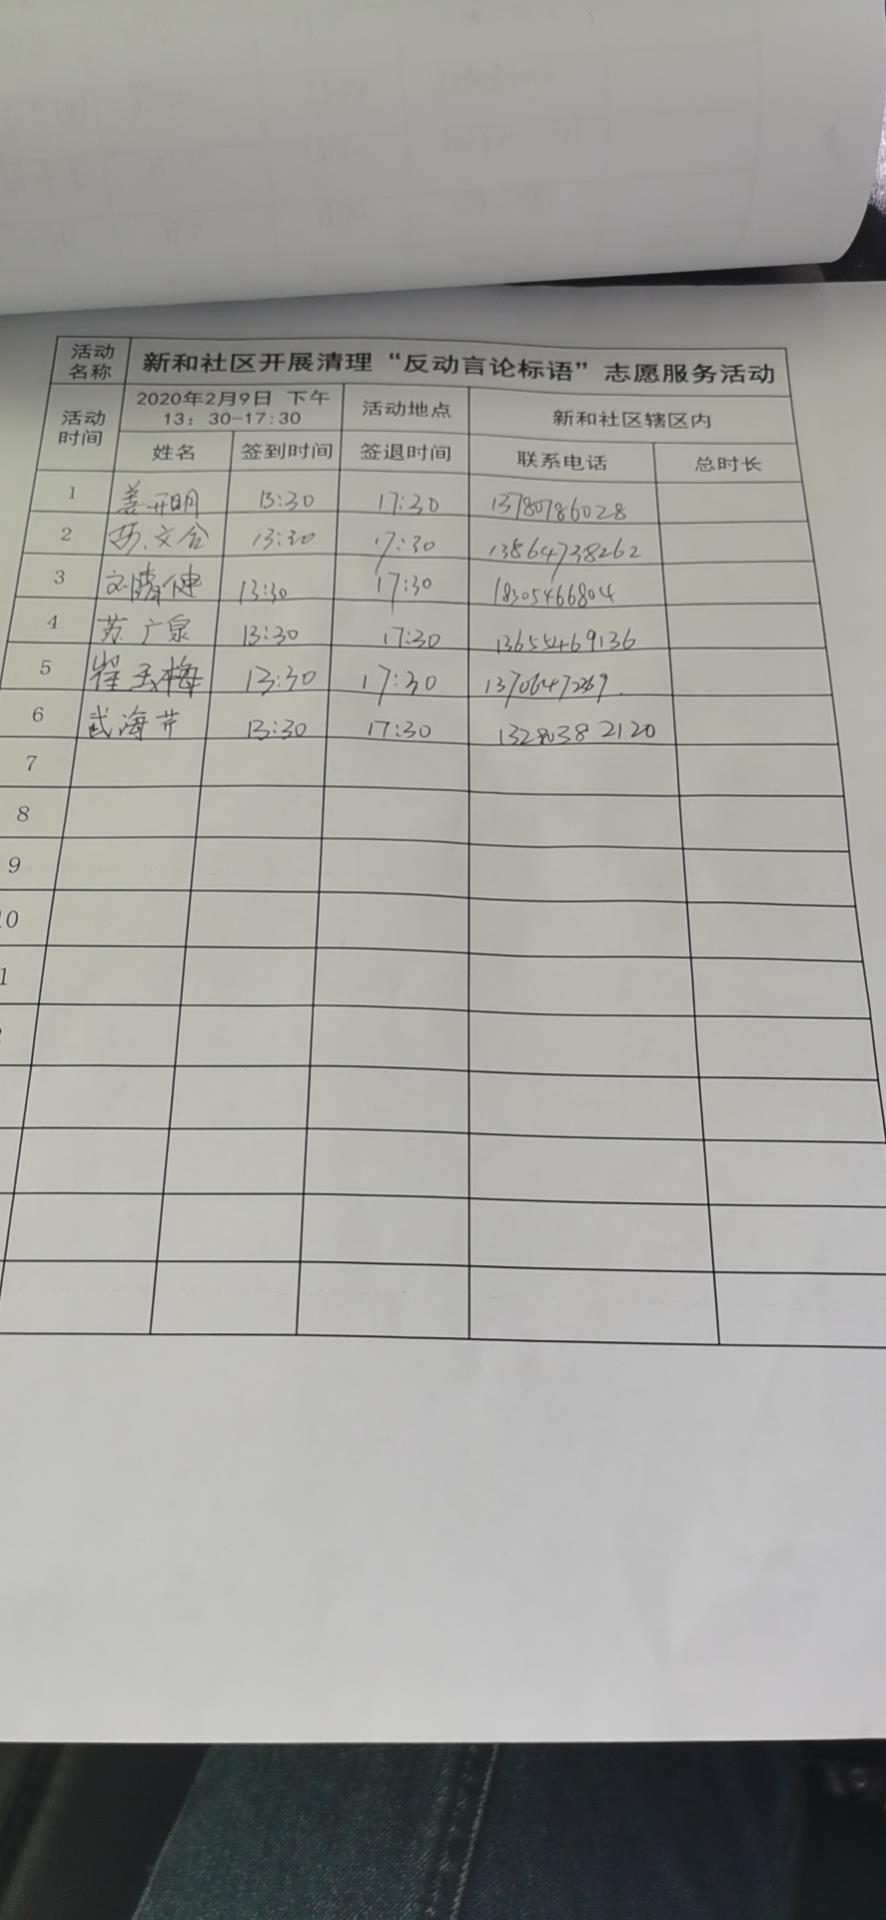 活动名称 新和社区开展清理“反动言论标语”志愿服务活动
活动时间 2020年2月9日 下午 13：30-17:30 活动地点 新和社区辖区内
姓名 签到时间 签退时间 联系电话 总时长
1 姜开明 13:30 17:30 13780786028
2 文合 13:30 17:30 13864738262
3 刘清健 13:30 17:30 18305466804
4 苏广泉 13:30 17:30 13655469136
5 翟玉梅 13:30 17:30 13706472269
6 武海芹 13:30 17:30 13280382120
7
8
9
10
1